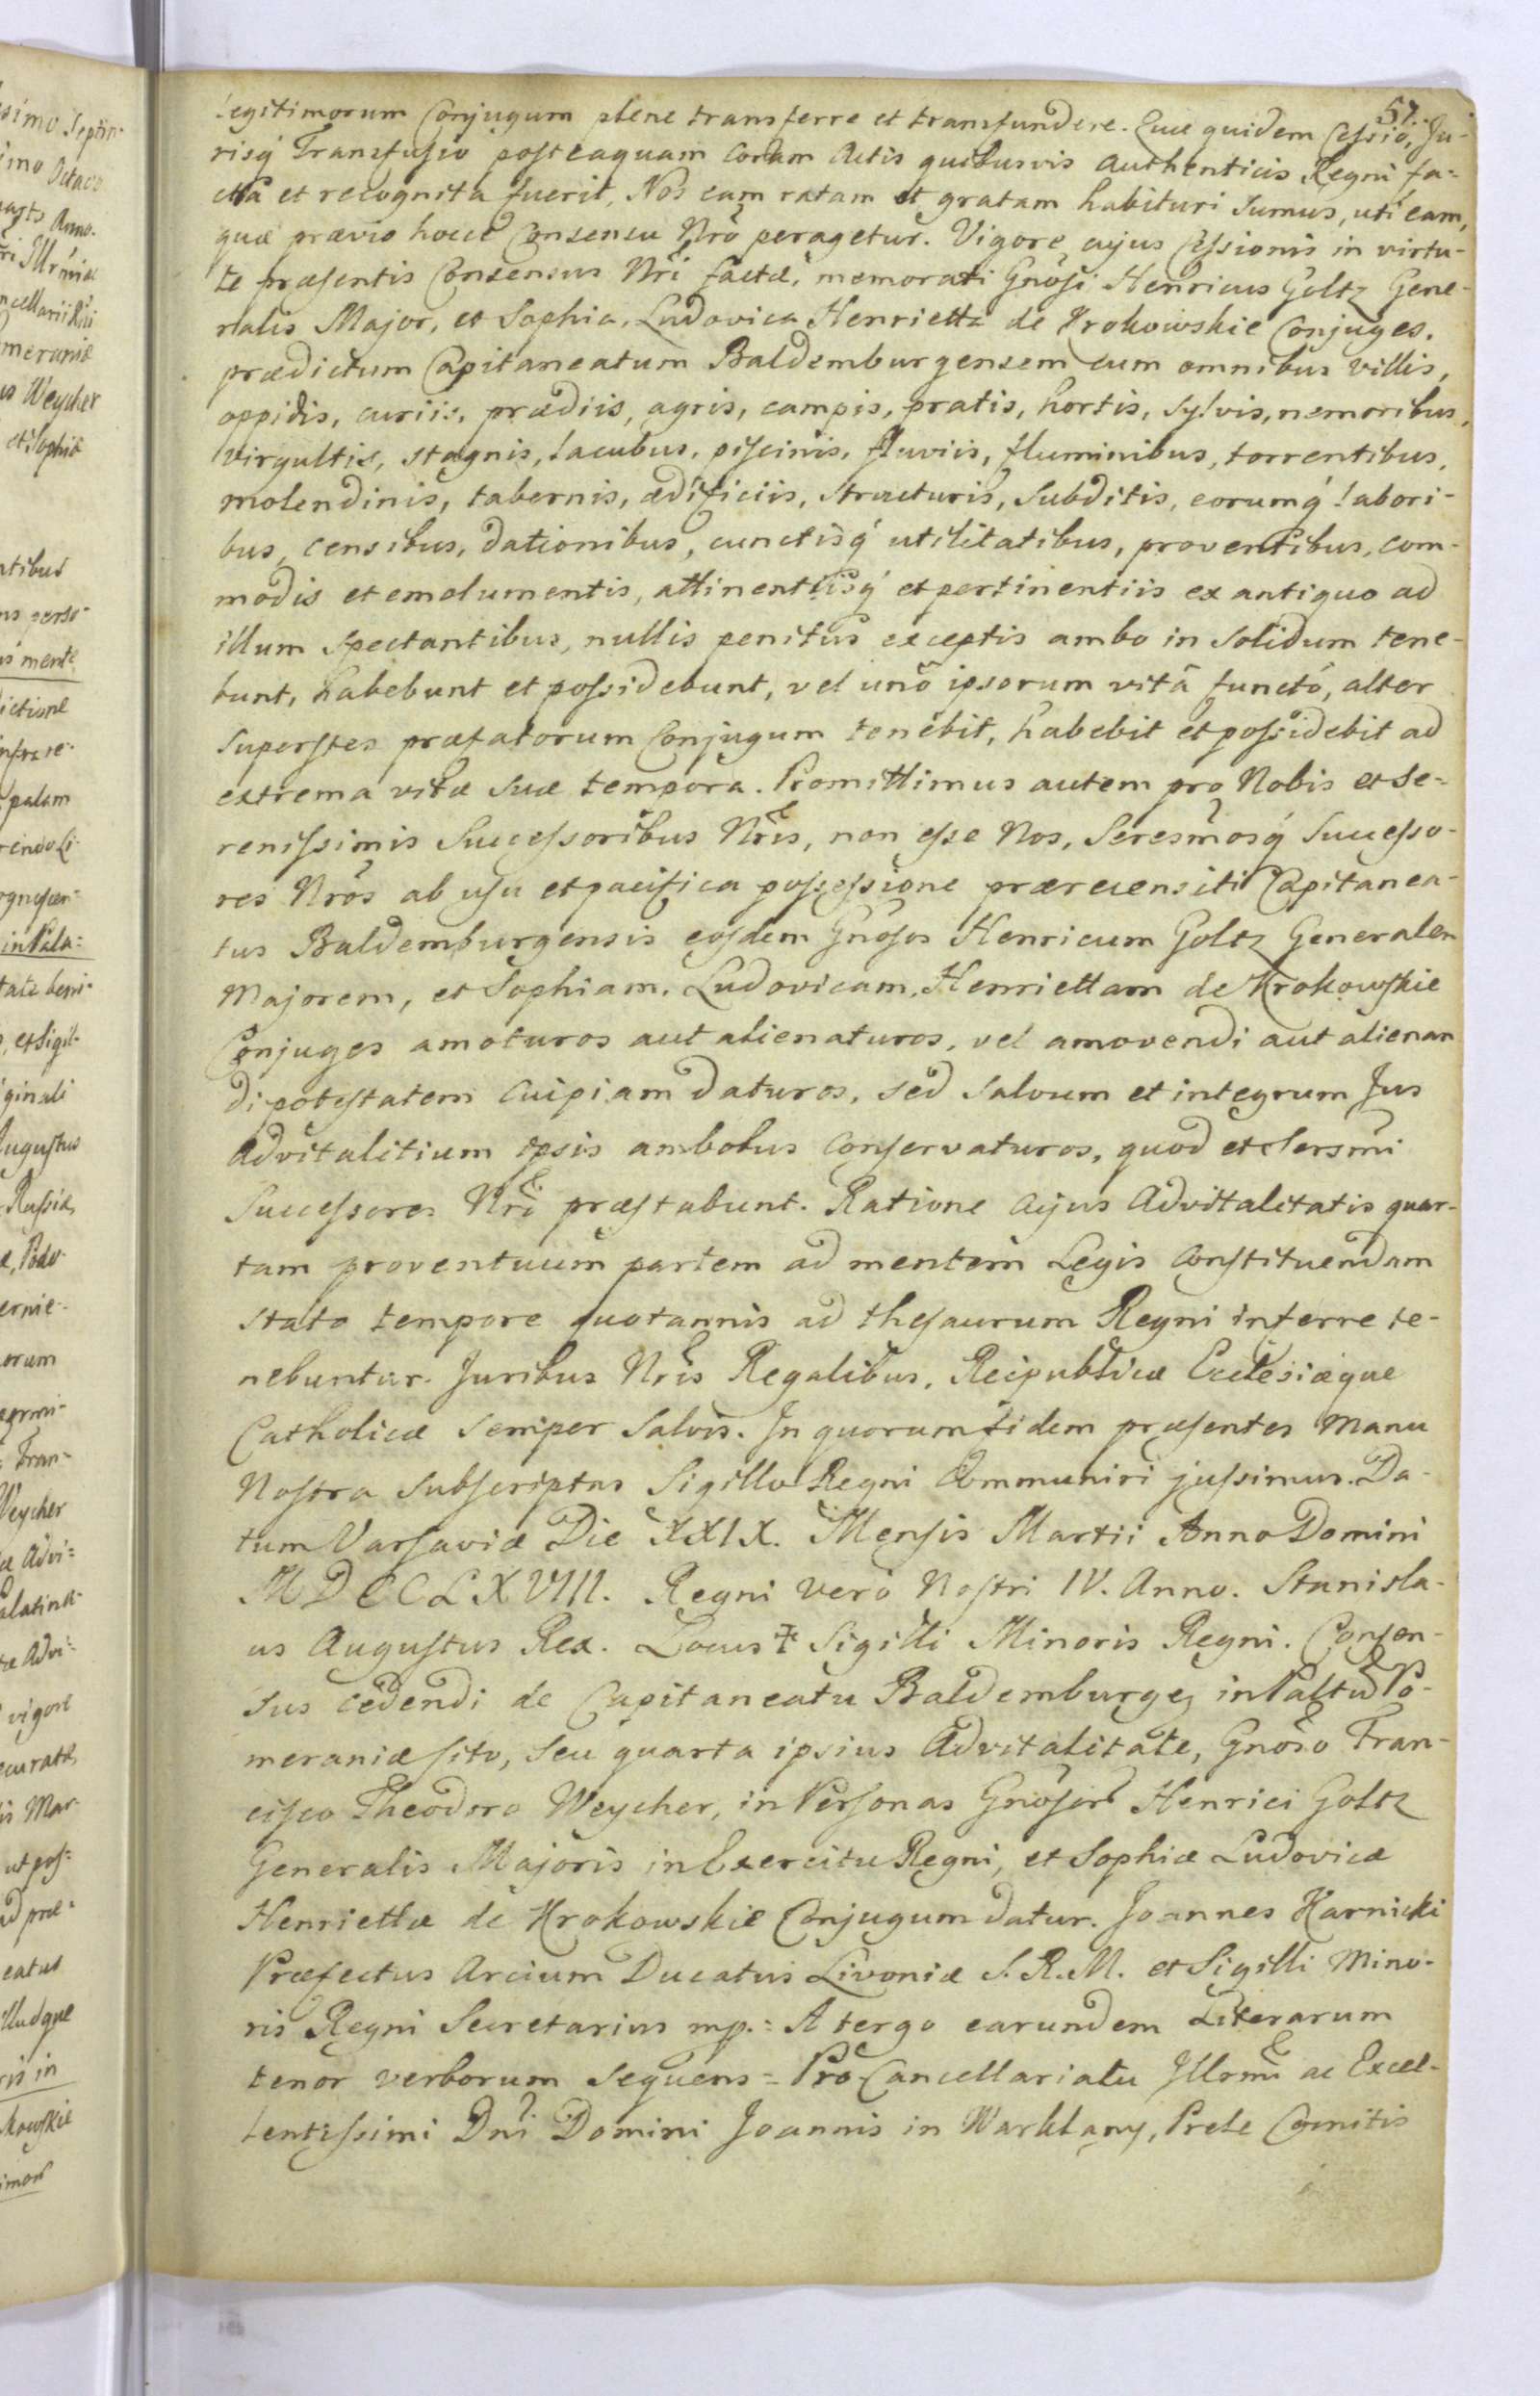 57.
legitimorum Conjugum plene transferre et transfundere. Quæ quidem Cessio, Ju-
risq́ Transfusio posteaquam coram Actis quibusvis authenticis Regni fa=
cta et recognita fuerit, Nos eam ratam et gratam habituri sumus, uti eam,
quæ prævio hocce Consensu Nrō peragetur. Vigore cujus Cessionis in virtu-
te præsentis Consensus Nrī factæ, memorati Gnōsi Henricus Goltz Gene-
ralis Major, et Sophia, Ludovica Henrietta de Krokowskie Conjuges,
prædictum Capitaneatum Baldemburgensem cum omnibus villis,
oppidis, curiis, prædiis, agris, campis, pratis, hortis, sylvis, nemoribus,
virgultis, stagnis, lacubus, piscinis, fluviis, fluminibus, torrentibus,
molendinis, tabernis, ædificiis, structuris, subditis, eorumq́ labori-
bus, censibus, dationibus, cunctisq́ utilitatibus, proventibus, com-
modis et emolumentis, attinentiisq́ et pertinentiis ex antiquo ad
illum spectantibus, nullis penitus exceptis ambo in solidum tene-
bunt, habebunt et possidebunt, vel unō ipsorum vitâ functô, alter
superstes præfatorum Conjugum tenebit, habebit et possidebit ad
extrema vitæ suæ tempora. Promittimus autem pro Nobis et Se-
renissimis Successoribus Nrīs, non esse Nos, Seresmōsq́ Successo-
res Nrōs ab usu et pacifica possessione prærecensiti Capitanea-
tus Baldemburgensis eosdem Gnōsos Henricum Goltz Generalem
Majorem, et Sophiam, Ludovicam, Henriettam de Krokowskie
Conjuges amoturos aut alienaturos, vel amovendi aut alienan
di potestatem cuipiam daturos, sed salvum et integrum Jus
Advitalitium ipsis ambobus conservaturos, quod et Sersmī
Successores Nrī præstabunt. Ratione cujus Advitalitatis quar-
tam proventuum partem ad mentem Legis constituendam
stato tempore quotannis ad thesaurum Regni inferre te-
nebuntur. Juribus Nrīs Regalibus, Reipublicæ Ecclesiæque
Catholicæ semper salvis. In quorum fidem præsentes manu
Nostra subscriptas Sigillo Regni Communiri jussimus. Da-
tum Varsaviæ Die XXIX. Mensis Martii Anno Domini
MDCCLXVIII. Regni vero Nostri IV. Anno. Stanisla-
us Augustus Rex. Locus ‡ Sigilli Minoris Regni. Consen-
sus cedendi de Capitaneatu Baldemburgē in Paltū Po-
meraniæ sito, seu quarta ipsius Advitalitate, Gnōso Fran-
cisco Theodoro Weycher, in Personas Gnōsor Henrici Goltz
Generalis Majoris in Exercitu Regni, et Sophiæ Ludovicæ
Henriettæ de Krokowskie Conjugum datur. Joannes Karnicki
Præfectus Arcium Ducatus Livoniæ S. R. M. et Sigilli Mino-
ris Regni Secretarius mp.= A tergo earundem Literarum
tenor verborum sequens = Pro Cancellariatu Jllrmī ac Excel-
lentissimi Dnī Domini Joannis in Warklany, Prele Comitis